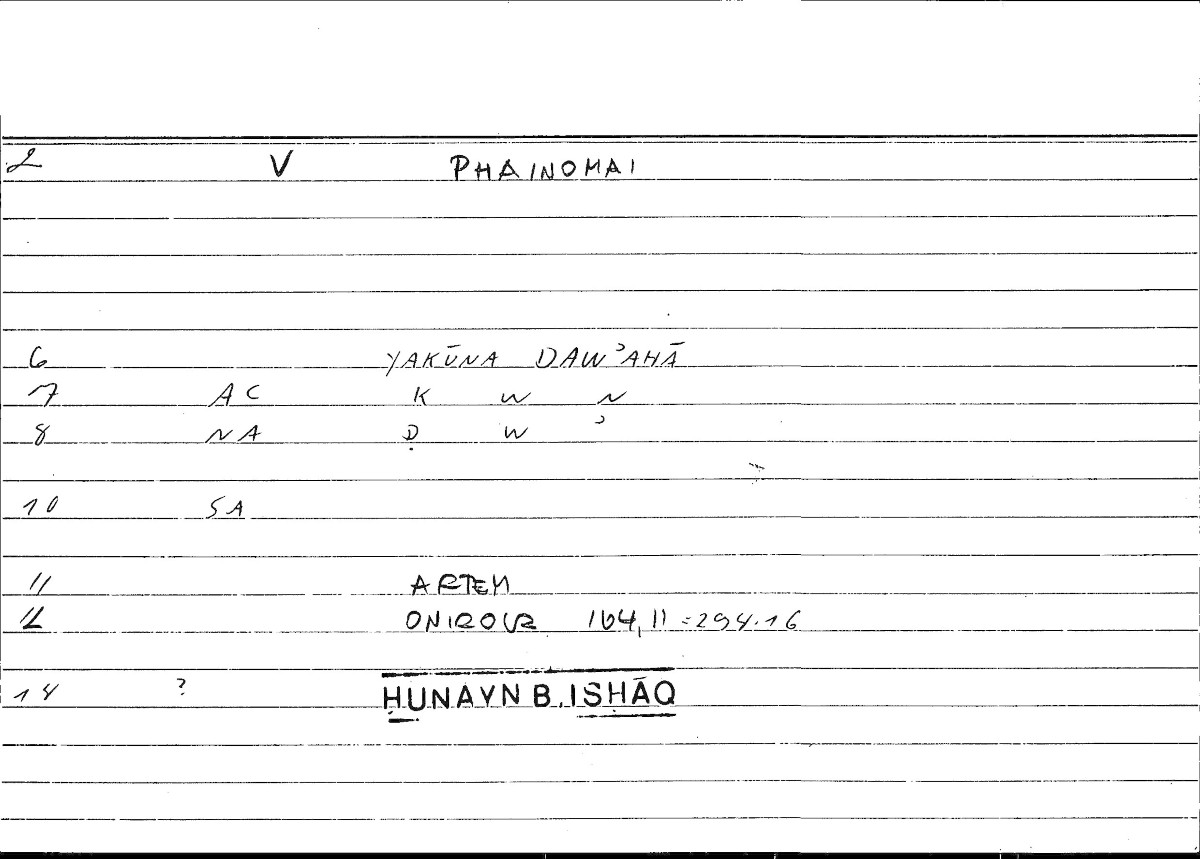 2 V PHAINOMAI
6 YAKŪNA DAWʾAHĀ
7 AC K W N
8 NA Ḍ W ʾ
10 SA
11 ARTEM
12 ONIROCR 164,11 = 294.16
14 ? ḤUNAYN B. ISḤĀQ